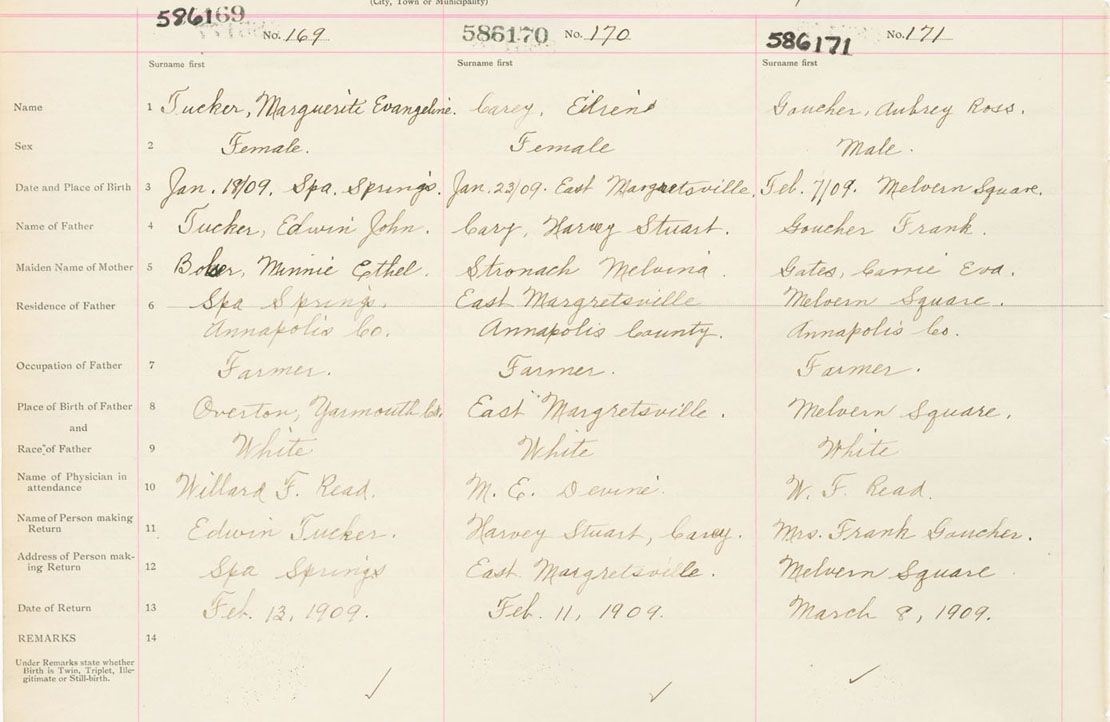 (City, Town or Municipality)
586169 No. 169 586170 No. 170 586171 No. 171
Surname first Surname first Surname first
Name 1 Tucker, Marguerite Evangeline. Carey, Eilein Goucher, Aubrey Ross.
Sex 2 Female. Female Male.
Date and Place of Birth 3 Jan. 18/09. Spa Springs. Jan. 23/09. East Margretsville. Feb. 7/09. Melvern Square.
Name of Father 4 Tucker, Edwin John. Cary, Harvey Stuart. Goucher Frank.
Maiden Name of Mother 5 Minnie Ethel. Stronach Melvina. Gates, Carrie Eva.
Residence of Father 6 Spa Springs. East Margretsville Melvern Square.
Annapolis Co. Annapolis County. Annapolis Co.
Occupation of Father 7 Farmer. Farmer. Farmer.
Place of Birth of Father 8 Overton, Yarmouth Co. East Margretsville. Melvern Square.
and
Race of Father 9 White White White
Name of Physician in
attendance 10 Willard F. Read. M. E. Devine. W. F. Read.
Name of Person making
Return 11 Edwin Tucker. Harvey Stuart, Carey. Mrs. Frank Goucher.
Address of Person mak-
ing Return 12 Spa Springs East Margretsville. Melvern Square
Date of Return 13 Feb. 13, 1909. Feb. 11, 1909. March 8, 1909.
REMARKS 14
Under Remarks state whether
Birth is Twin, Triplet, Ille-
gitimate or Still-birth.